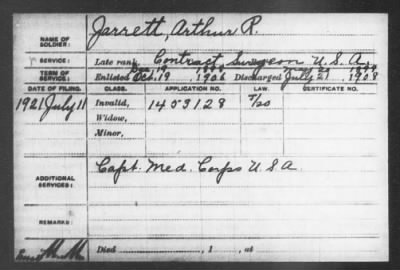 NAME OF SOLDIER: Jarrett, Arthur R.
SERVICE: Late rank, Contract Surgeon U.S.A.
TERM OF SERVICE: Enlisted Oct. 19 1906 Discharged July 21 1908
DATE OF FILING. CLASS. APPLICATION NO. LAW. CERTIFICATE NO.
1921 July 11 Invalid, 1453128 7/20
Widow,
Minor,
ADDITIONAL SERVICES: Capt. Med. Corps U.S.A.
REMARKS:
Died , 1 , at